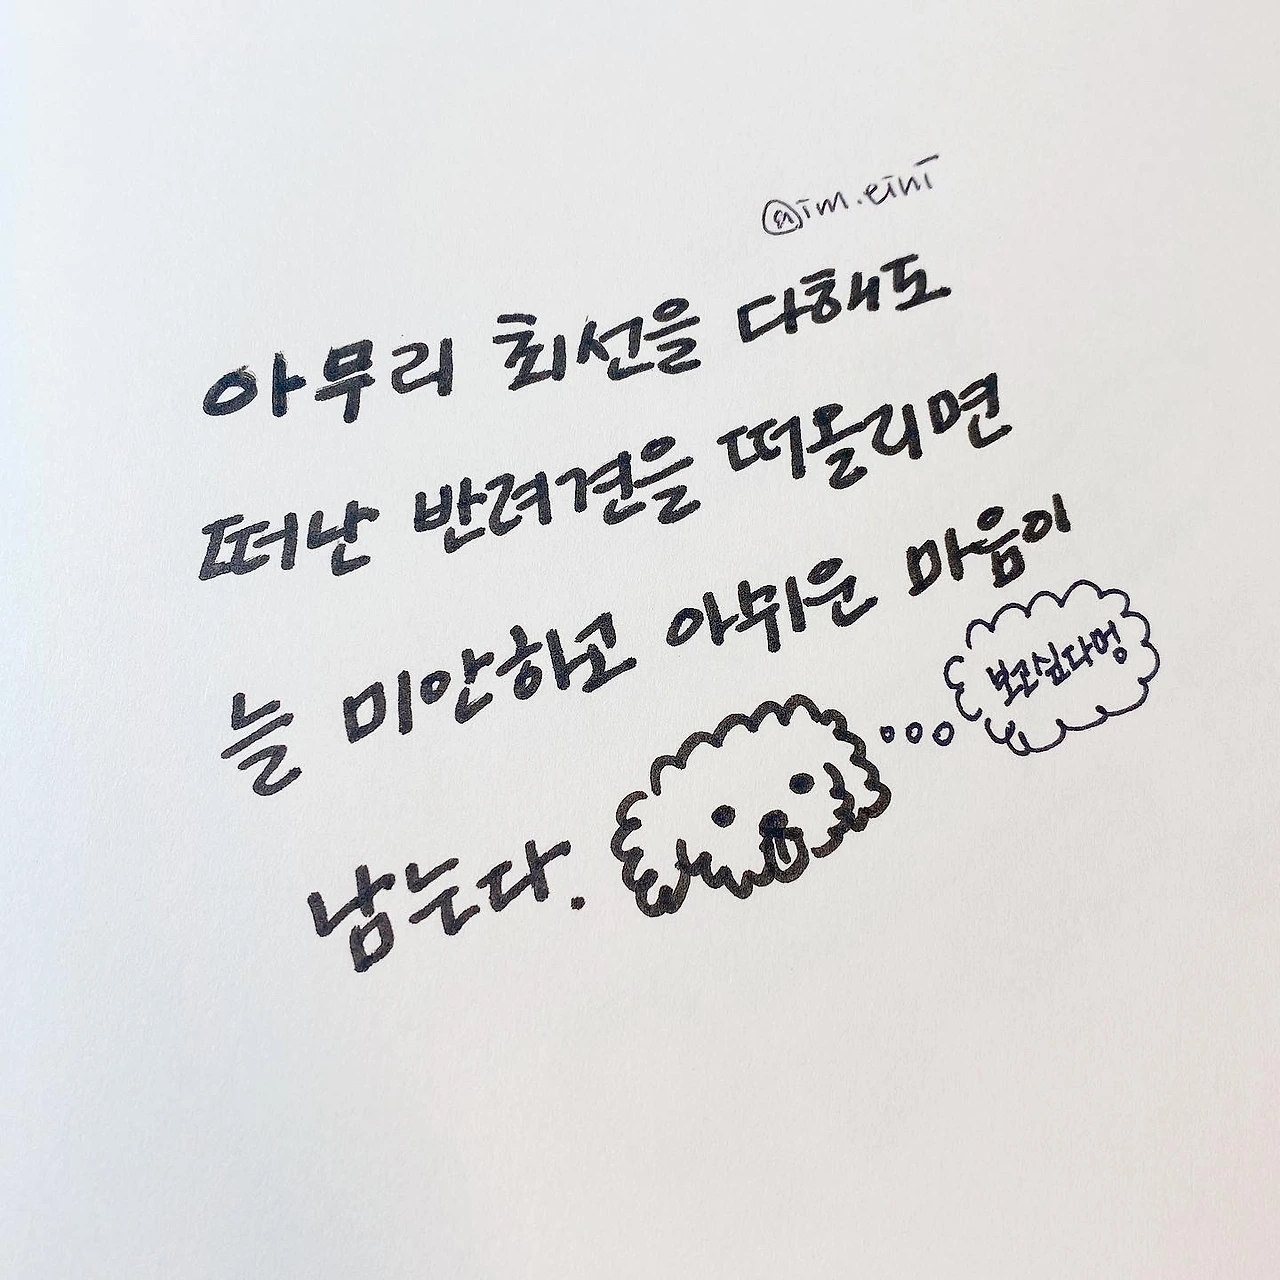 @im.eini
아무리 최선을 다해도
떠난 반려견을 떠올리면
늘 미안하고 아쉬운 마음이
남는다.
보고싶다멍